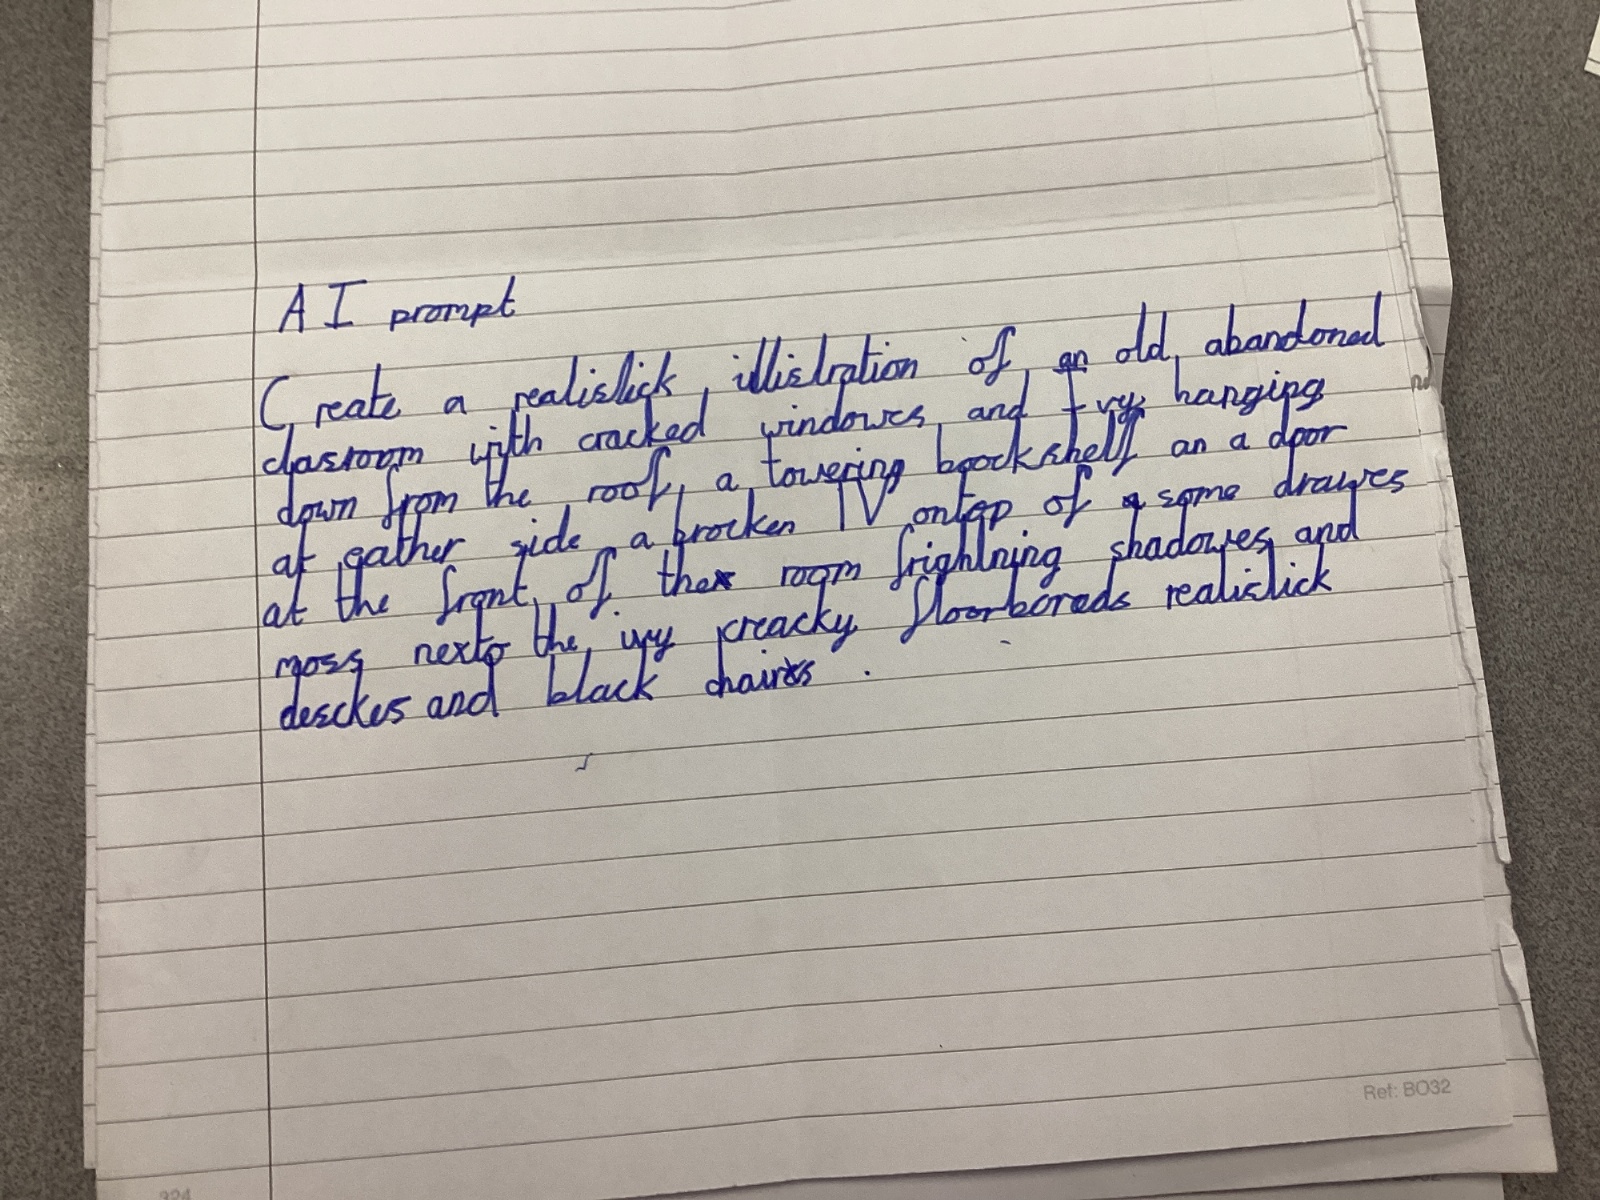 AI prompt
Create a realislick illistration of an old abandoned
clasroom with cracked windowes and Ivy hanging
down from the roof, a towering boockshelf an a door
at eather side a brocken TV ontop of some drawes
at the front of the room frightning shadowes and
moss nexto the ivy creacky floorborads realislick
desckes and black chairs.
Ref: BO32